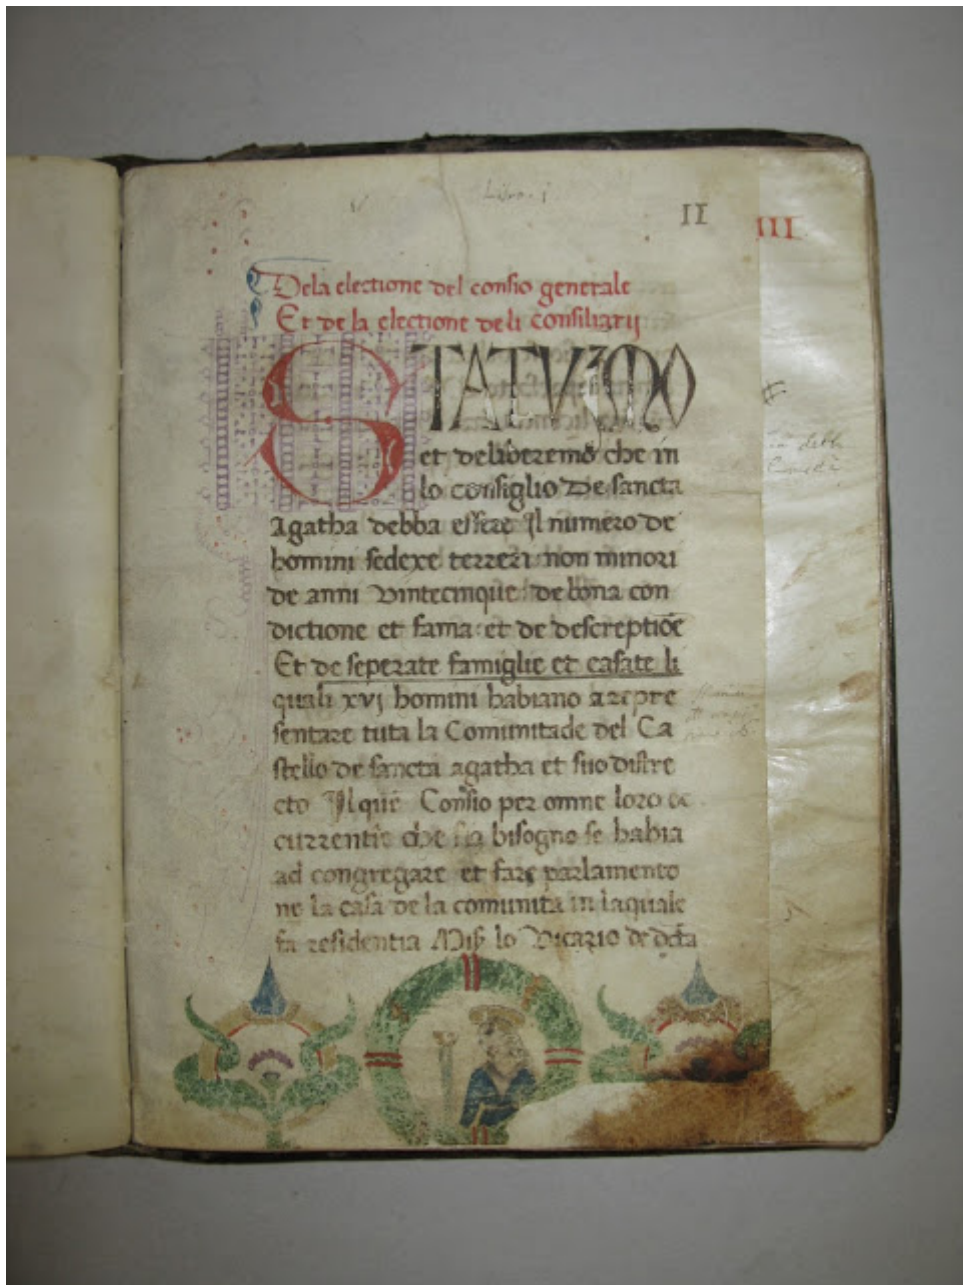 Libro. I
II
III
Dela electione del consio generale
Et de la electione deli consiliarij
STATUIMO
et deliberemo che in
lo consiglio De sancta
Agatha debba essere Il numero de
homini sedexe terreri non minori
de anni vintecinque de bona con
dictione et fama et de descreptiõe
Et de seperate famiglie et casate li
quali xvj homini habiano a repre
sentare tuta la Comunitade del Ca
stello de sancta agatha et suo distre
cto Il que Consio per omne loro oc
currentie che sia bisogno se habia
ad congregare et fare parlamento
ne la casa de la comunita in laquale
fa residentia lo Vicario de